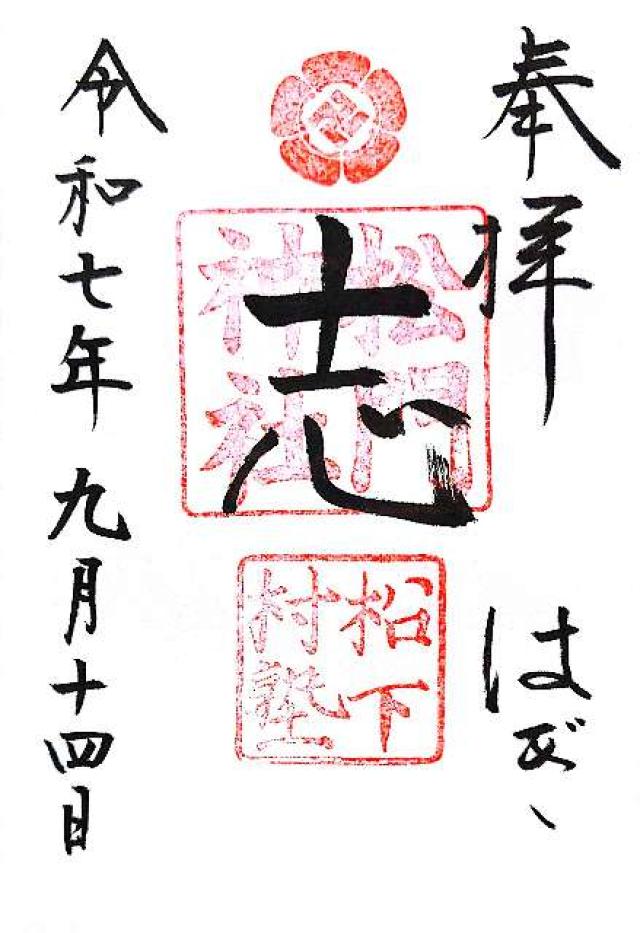 奉拝 はぎ
志
松門
神社
松下
村塾
令和七年九月十四日